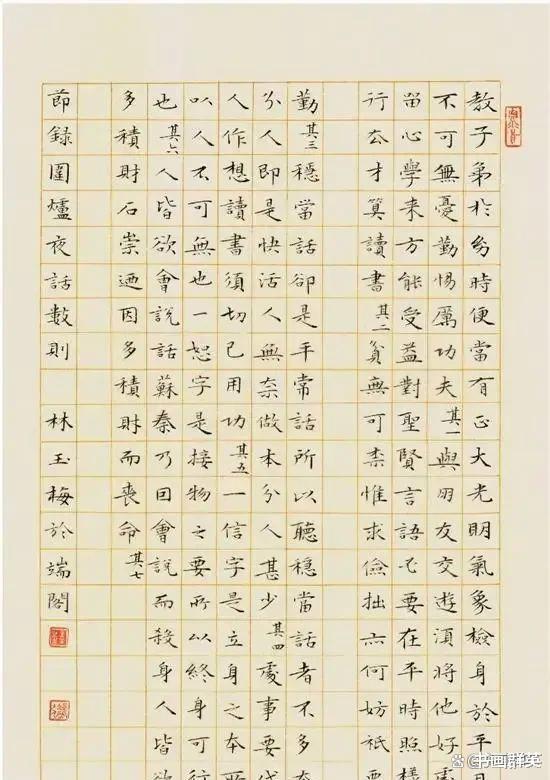 教子弟於幼時便當有正大光明氣象檢身於平
不可無憂勤惕厲功夫其一與朋友交遊須將他好處
留心學來方能受益對聖賢言語必要在平時照樣
行去才算讀書其二貧無可柰惟求儉拙亦何妨祇要
勤其三穩當話卻是平常話所以聽穩當話者不多本
分人即是快活人無奈做本分人甚少其四處事要代
人作想讀書須切己用功其五一信字是立身之本所
以人不可無也一恕字是接物之要所以終身可行
也其六人皆欲會說話蘇秦乃因會說而殺身人皆欲
多積財石崇迺因多積財而喪命其七
節錄圍爐夜話數則 林玉梅於端閣
书画群英